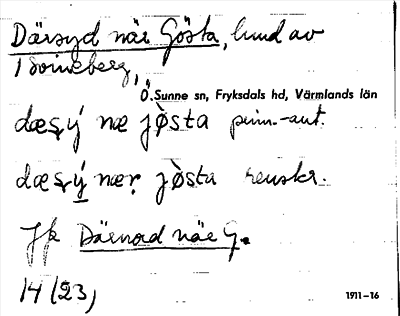 Därsyd när Gösta, lund av
Torneberg,
Ö. Sunne sn, Fryksdals hd, Värmlands län
dæʂý næ jø̀sta prim.-aut.
dæʂý næṛ jø̀sta renskr.
Jfr Därnord när G.
14 (23)
1911–16